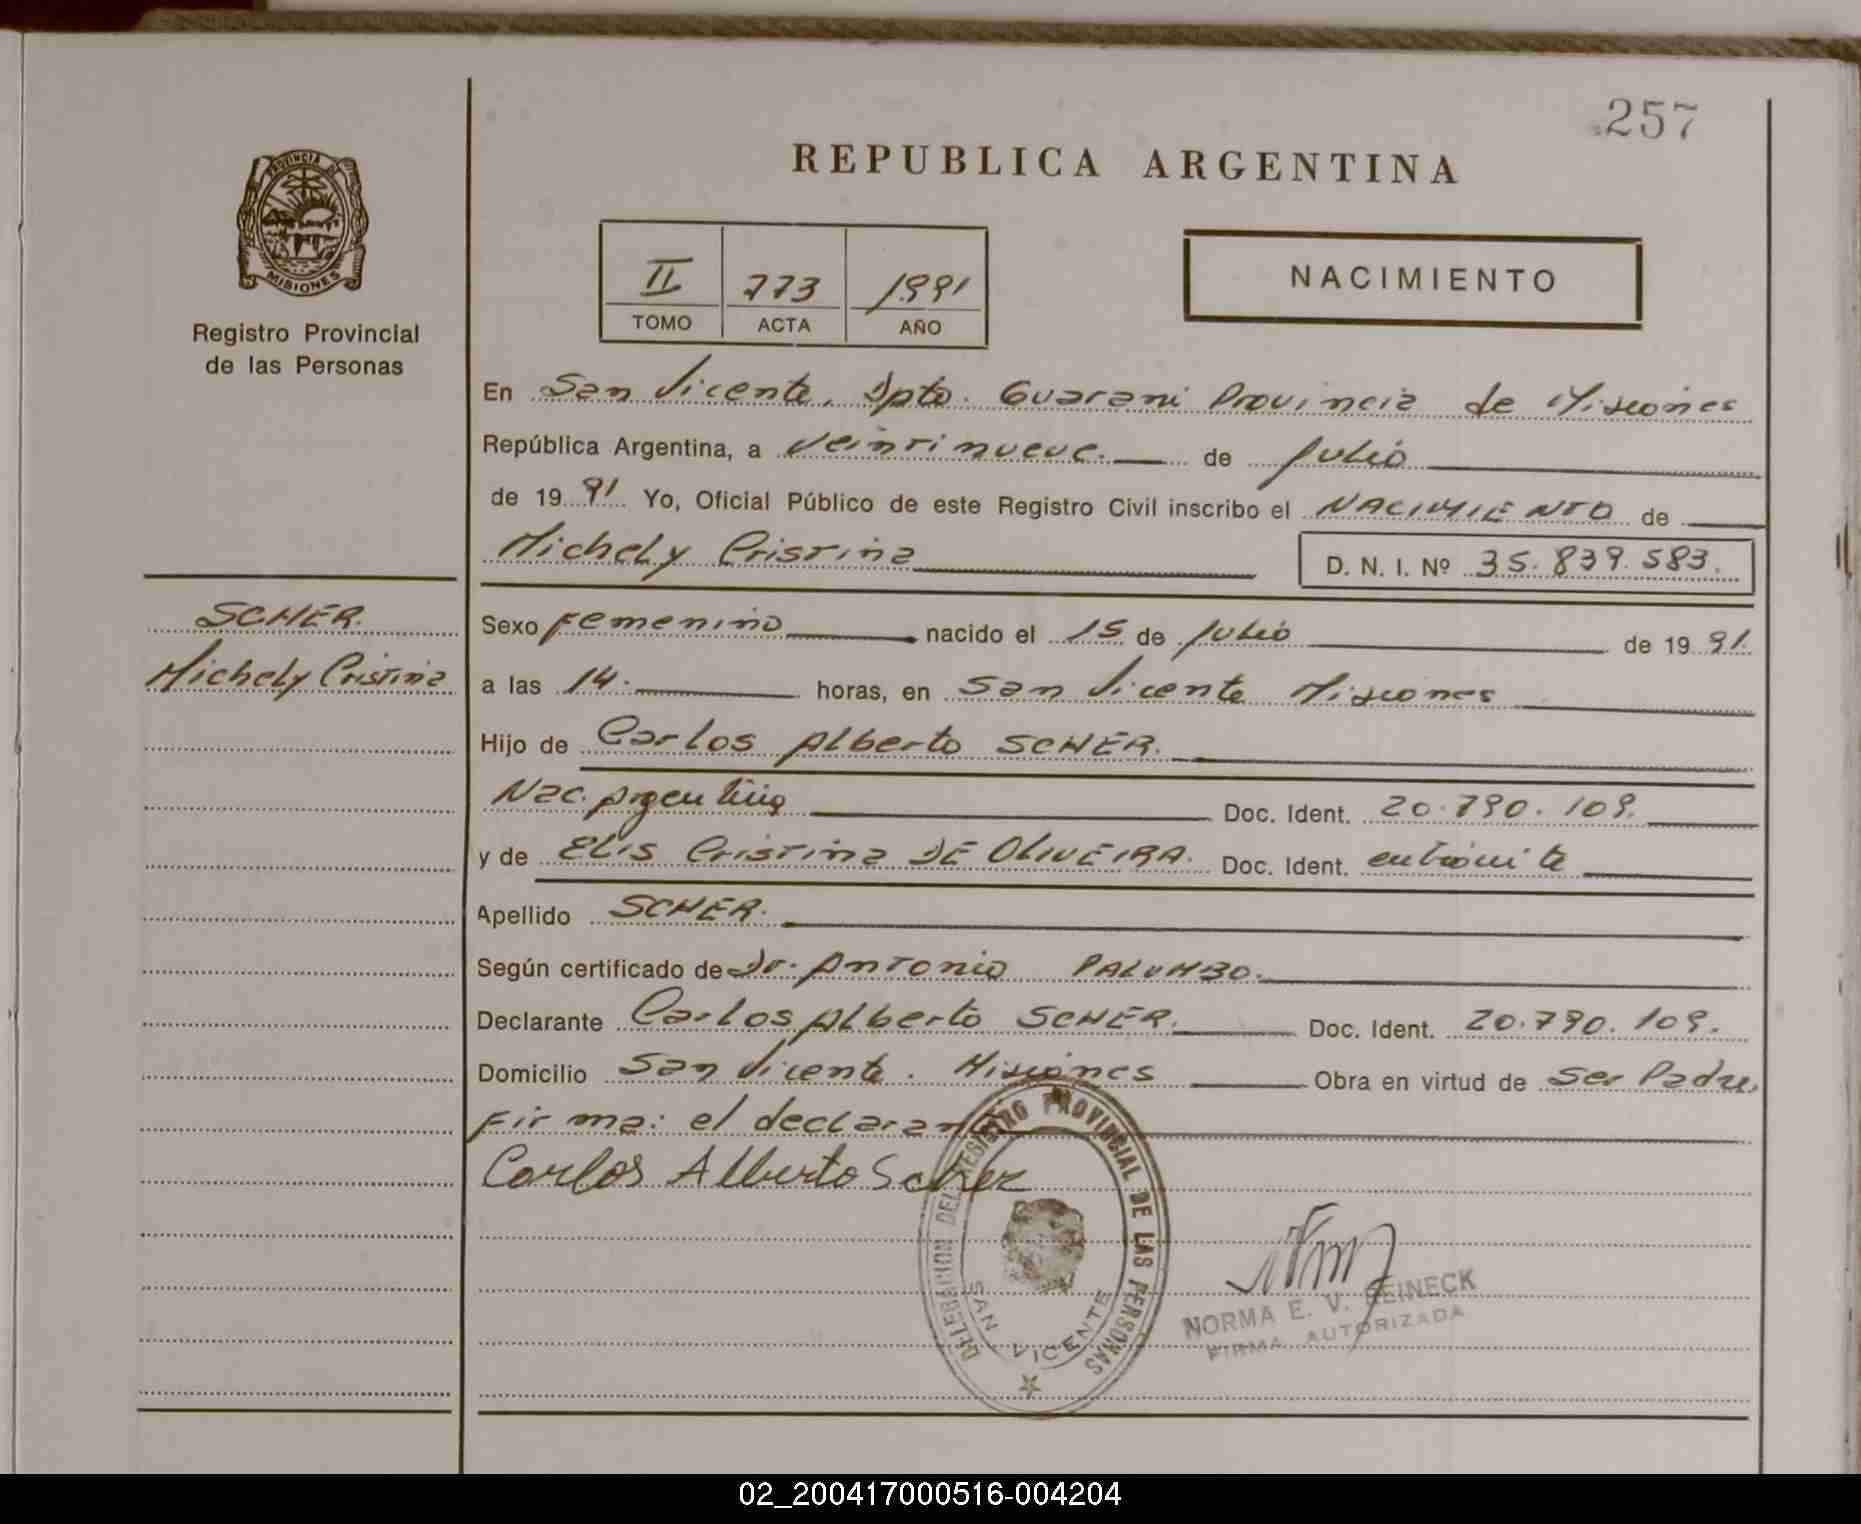 257
REPUBLICA ARGENTINA
PROVINCIA DE
MISIONES
Registro Provincial
de las Personas
II 773 1991
TOMO ACTA AÑO
NACIMIENTO
En San Vicente, Dpto. Guarani Provincia de Misiones
República Argentina, a veintinueve. de Julio
de 19 91 Yo, Oficial Público de este Registro Civil inscribo el NACIMIENTO de
Michely Cristina D. N. I. Nº 35.839.583.
SCHER.
Michely Cristina
Sexo Femenino nacido el 15 de Julio de 19 91.
a las 14. horas, en San Vicente Misiones
Hijo de Carlos Alberto SCHER.
Nac. Argentina Doc. Ident. 20.790.109.
y de Elis Cristina DE OLIVEIRA. Doc. Ident.
Apellido SCHER.
Según certificado de Dr. Antonio PALUMBO.
Declarante Carlos Alberto SCHER. Doc. Ident. 20.790.109.
Domicilio San Vicente. Misiones Obra en virtud de Ser Padre.
Firma: el declarante
Carlos Alberto Scher
DELEGACION DEL REGISTRO PROVINCIAL DE LAS PERSONAS
SAN VICENTE
NORMA E. V. REINECK
FIRMA AUTORIZADA
02_200417000516-004204